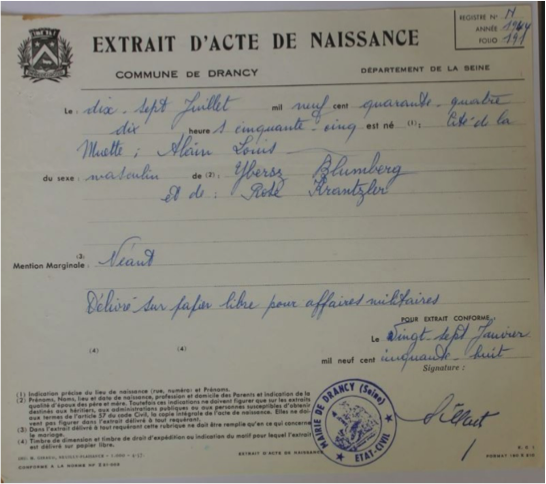 REGISTRE N° N
ANNÉE 1944
FOLIO 191
EXTRAIT D'ACTE DE NAISSANCE
COMMUNE DE DRANCY
DÉPARTEMENT DE LA SEINE
Le dix-sept Juillet mil neuf cent quarante-quatre
dix heures cinquante-cinq est né (1): Cité de la
Muette; Alain Louis
du sexe masculin de (2): Ybersz Blumberg
et de: Rose Krantzler
(3)
Mention Marginale. Néant
Délivré sur papier libre pour affaires militaires
POUR EXTRAIT CONFORME,
Le Vingt sept Janvier
mil neuf cent cinquante-huit
(4) (4)
Signature :
(1) Indication précise du lieu de naissance (rue, numéro) et Prénoms.
(2) Prénoms, Noms, lieu et date de naissance, profession et domicile des Parents et indication de la
qualité d'époux des père et mère. Toutefois ces indications ne doivent figurer que sur les extraits
destinés aux héritiers, aux administrations publiques ou aux personnes susceptibles d'obtenir
aux termes de l'article 57 du code Civil, la copie intégrale de l'acte de naissance. Elles ne doi-
vent pas figurer dans l'extrait délivré à tout requérant.
(3) Dans l'extrait délivré à tout requérant cette rubrique ne doit être remplie qu'en ce qui concerne
le mariage.
(4) Timbre de dimension et timbre de droit d'expédition ou indication du motif pour lequel l'extrait
est délivré sur papier libre.
MAIRIE DE DRANCY (Seine)
ETAT-CIVIL
EXTRAIT D'ACTE DE NAISSANCE
CONFORME A LA NORME
FORMAT